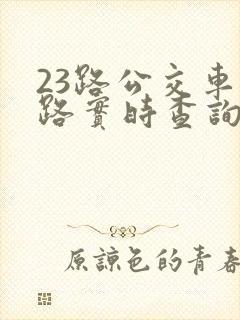 23路公交車
路實時查詢
原諒色的青春